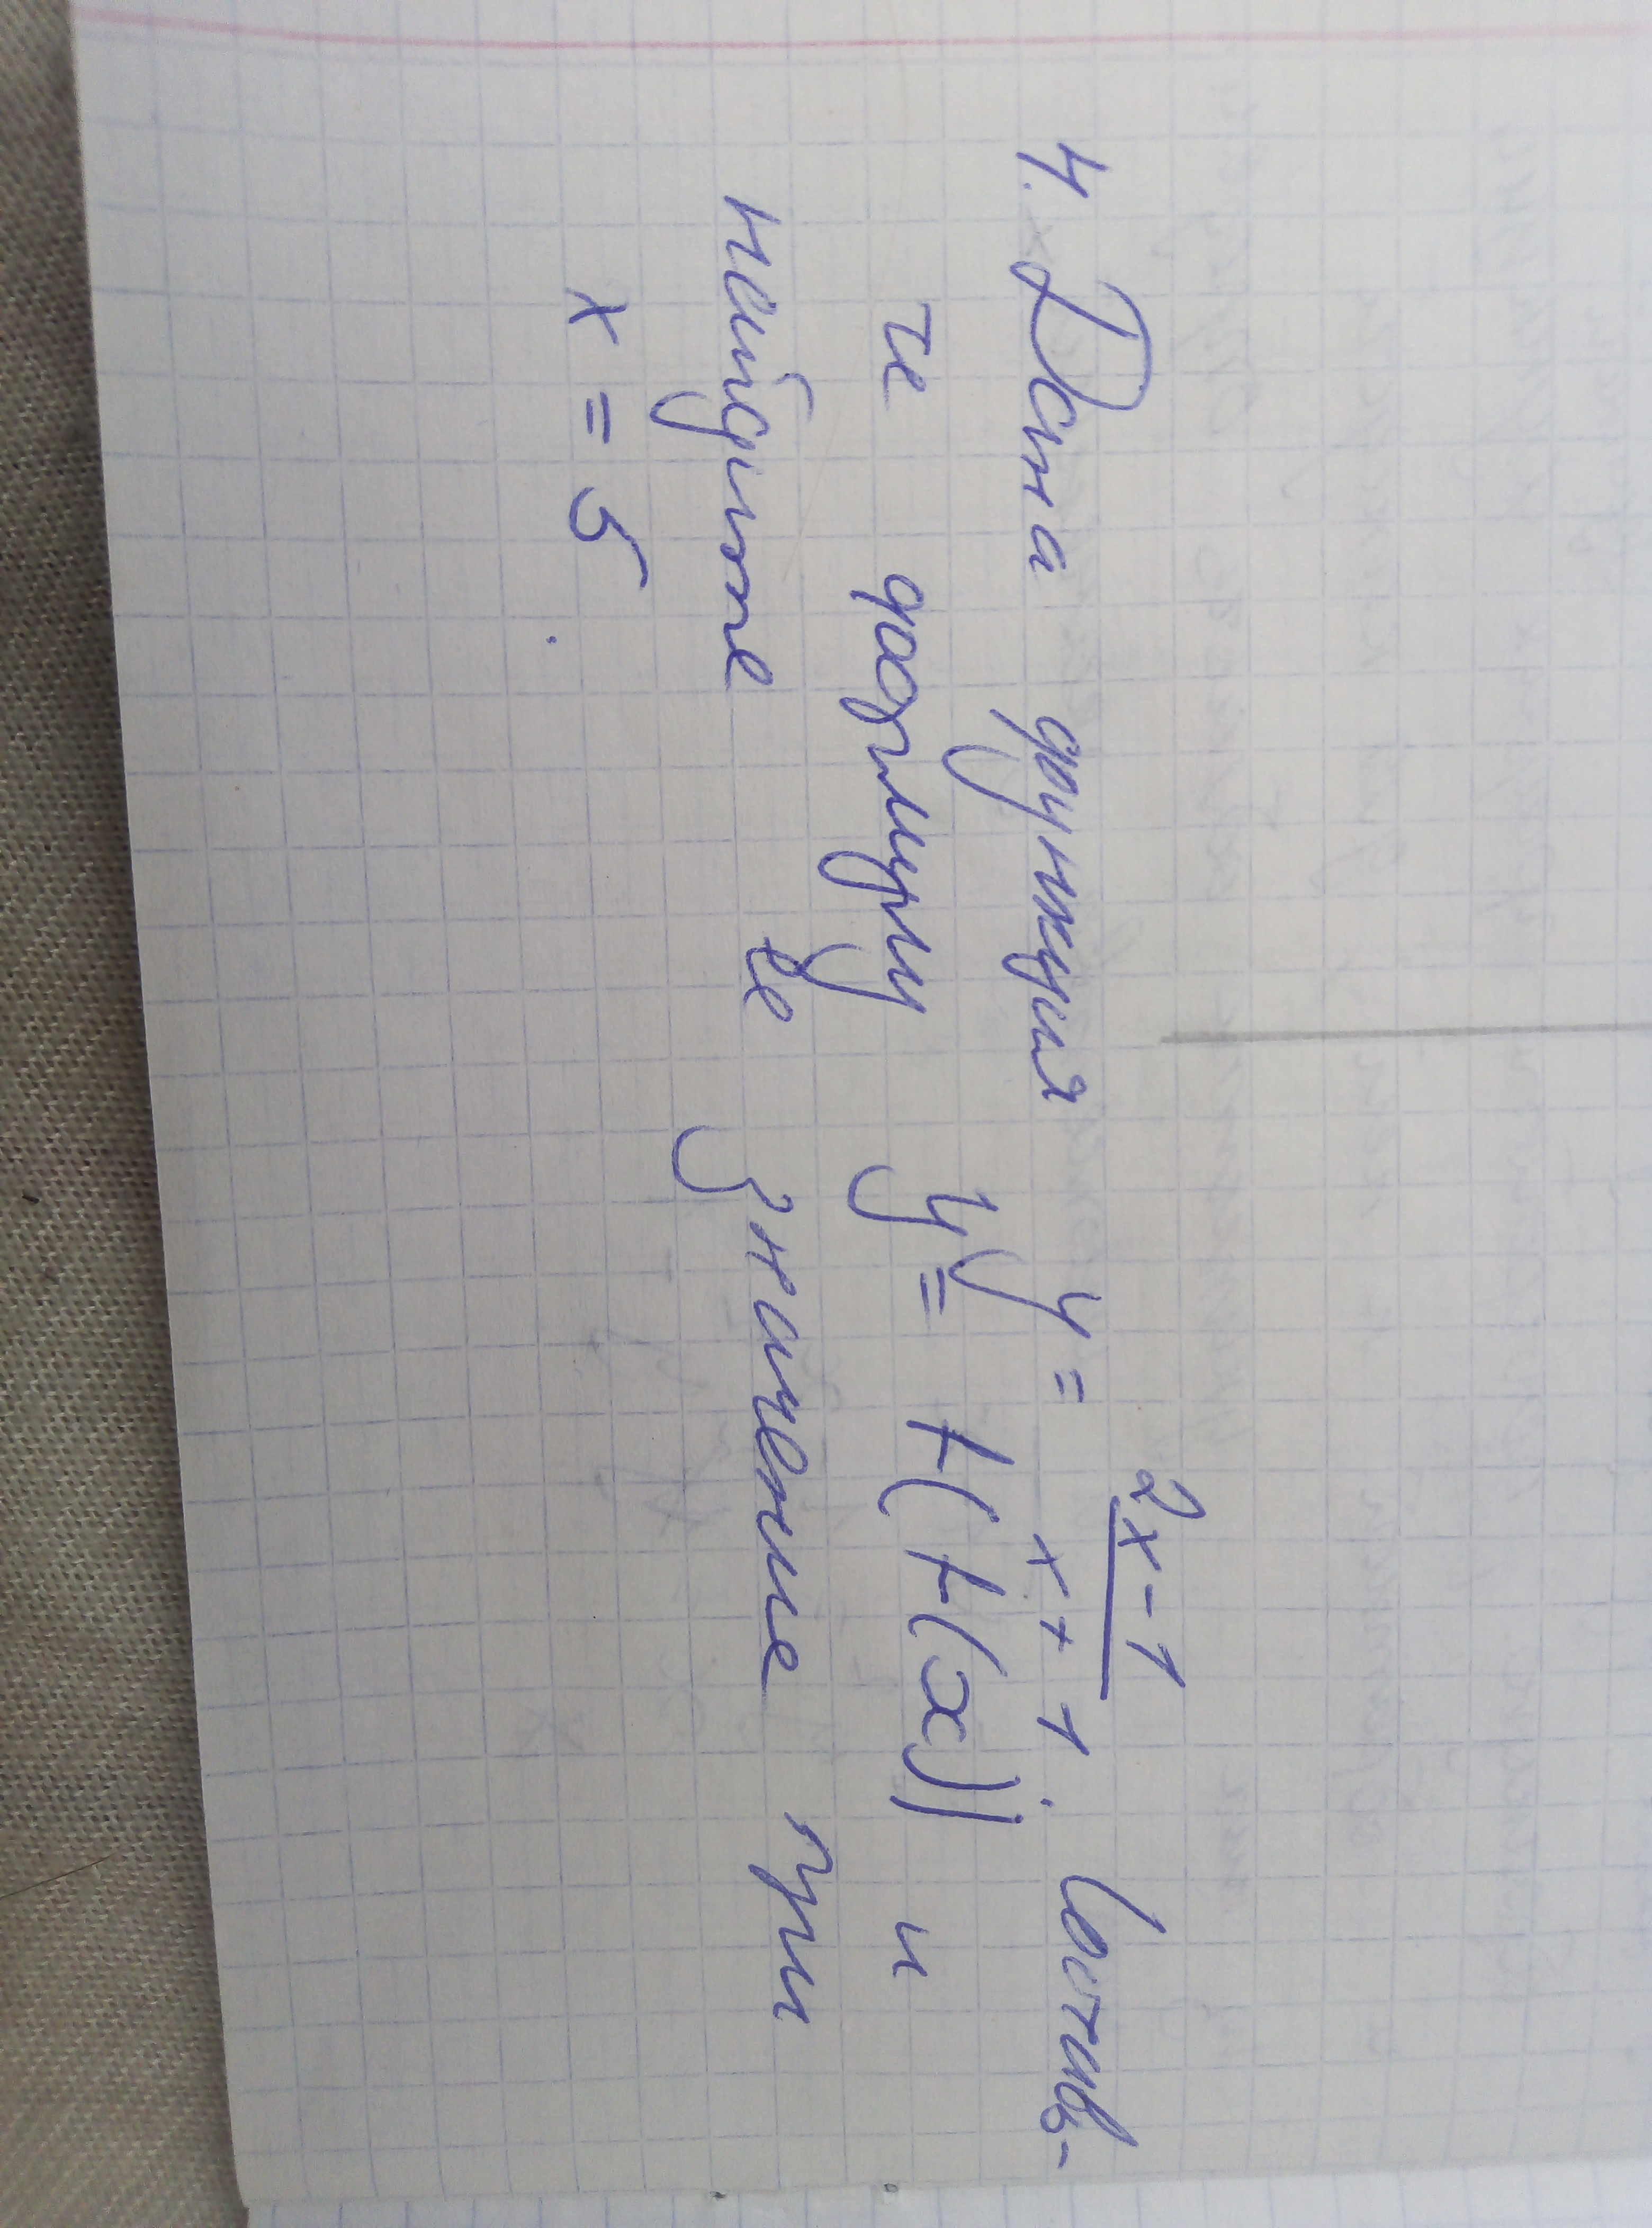 4. Дана функция y = \frac{2x-1}{x+1}. Составь-
те формулу y = f(f(x)) и
найдите ее значение при
x = 5